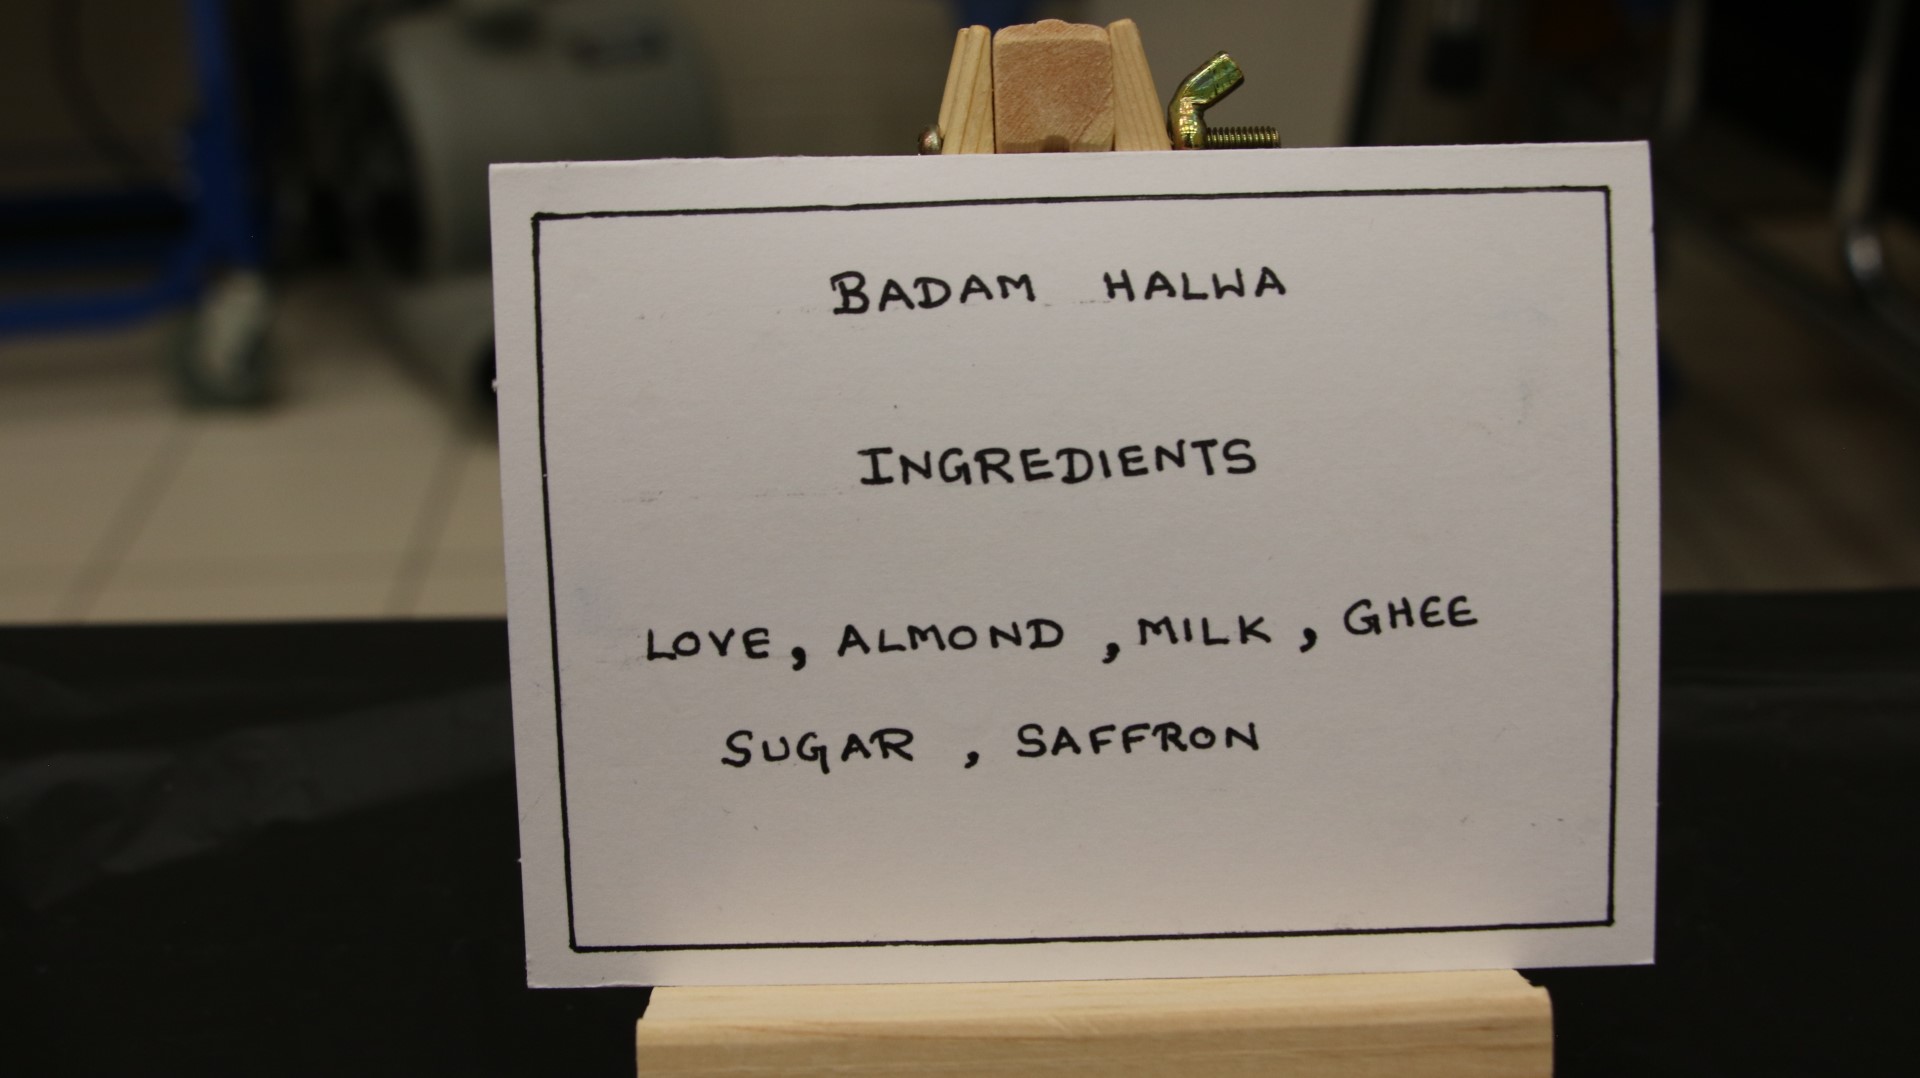 BADAM HALWA
INGREDIENTS
LOVE, ALMOND , MILK , GHEE
SUGAR , SAFFRON